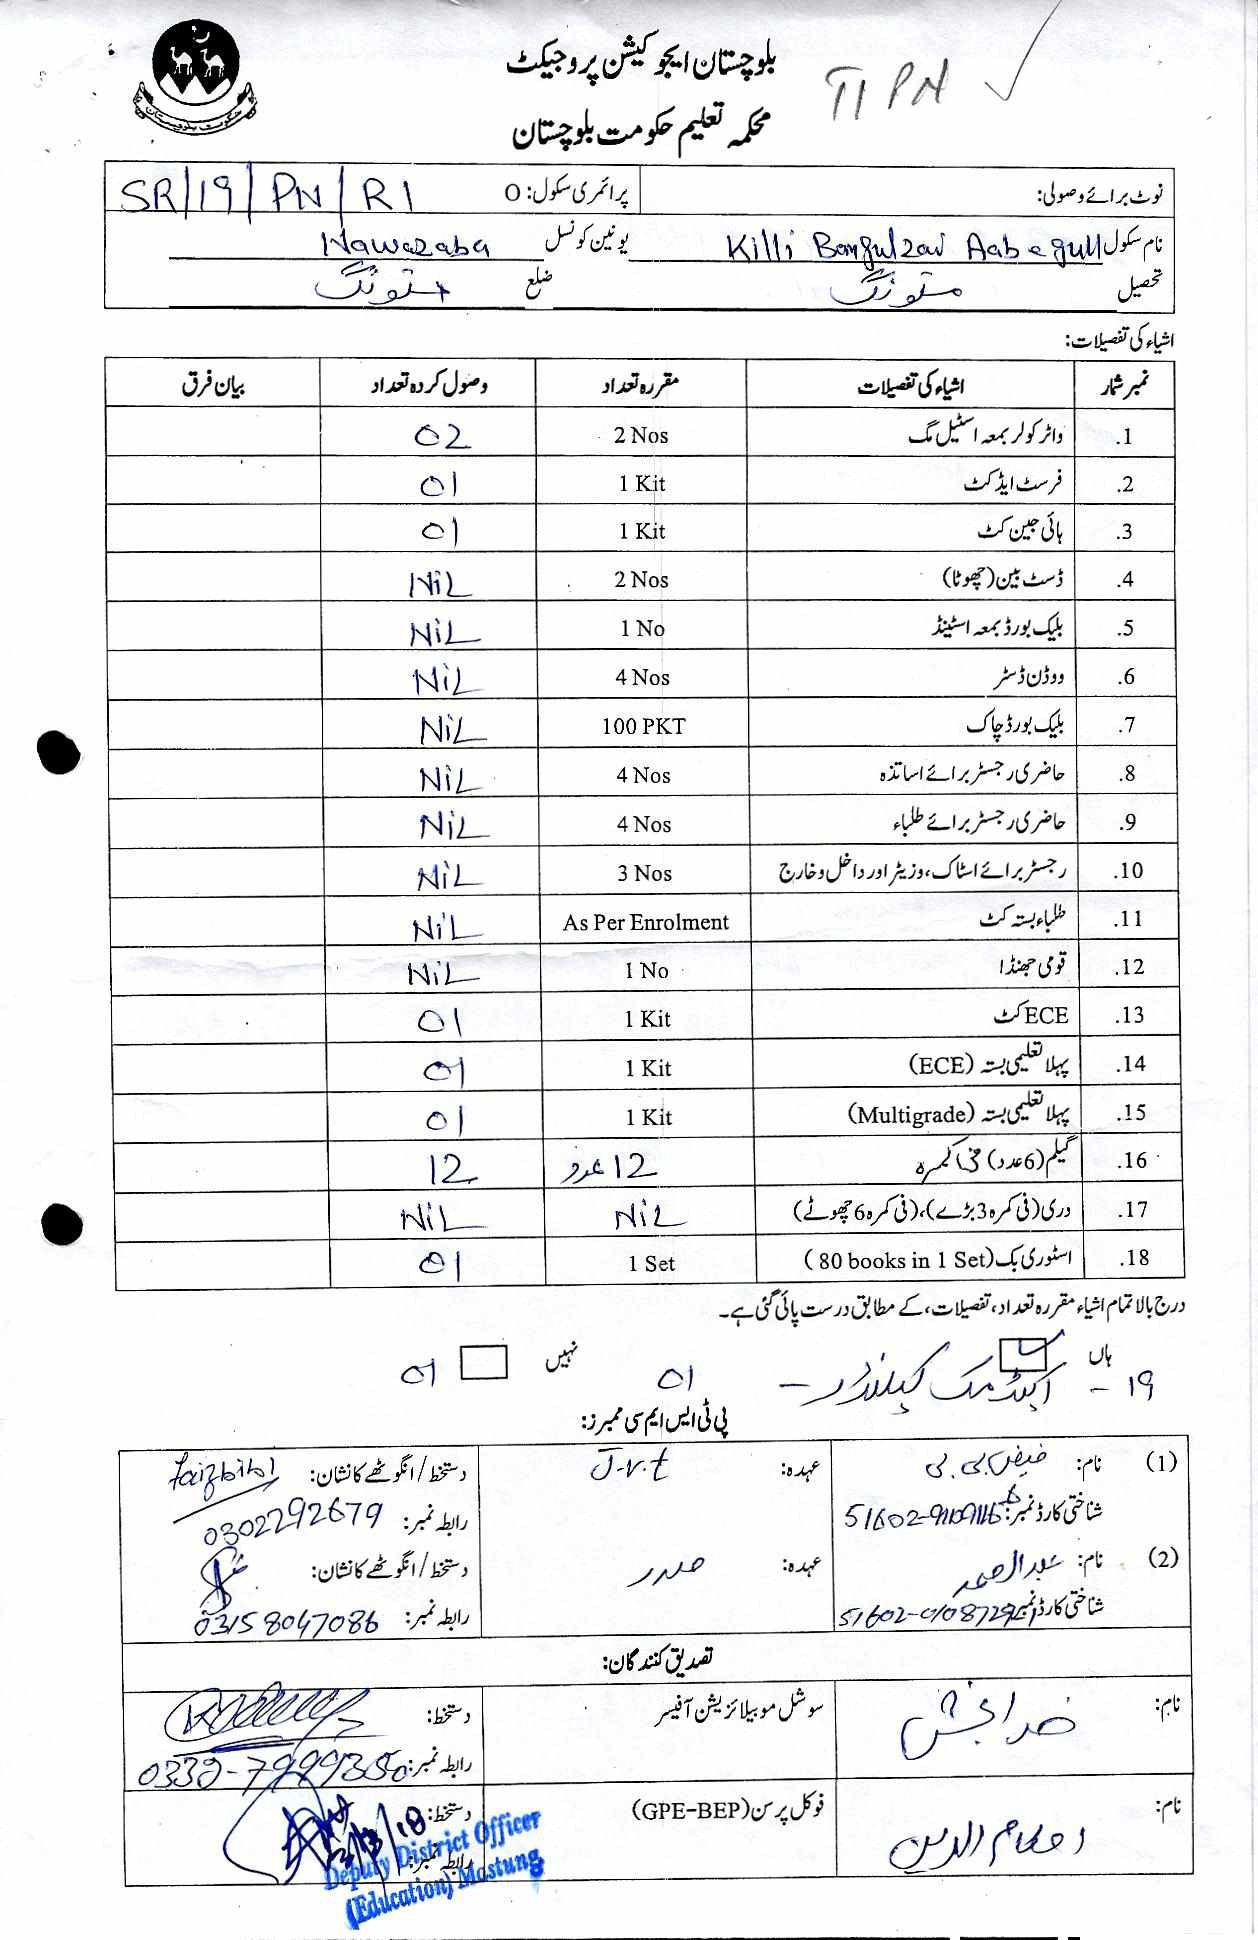 بلوچستان ایجوکیشن پروجیکٹ
TIPN
محکمہ تعلیم حکومت بلوچستان
نوٹ برائے وصولی: پرائمری سکول: O SR/19/PN/R1
نام سکول Killi Bangulzai Aabegull یونین کونسل Nawazaba
تحصیل مستونگ ضلع مستونگ
اشیاء کی تفصیلات:
نمبر شمار اشیاء کی تفصیلات مقررہ تعداد وصول کردہ تعداد بیان فرق
1. واٹر کولر بمعہ اسٹیل مگ 2 Nos 02
2. فرسٹ ایڈ کٹ 1 Kit 01
3. ہائی جین کٹ 1 Kit 01
4. ڈسٹ بین (چھوٹا) 2 Nos NiL
5. بلیک بورڈ بمعہ اسٹینڈ 1 No NiL
6. ووڈن ڈسٹر 4 Nos NiL
7. بلیک بورڈ چاک 100 PKT NiL
8. حاضری رجسٹر برائے اساتذہ 4 Nos NiL
9. حاضری رجسٹر برائے طلباء 4 Nos NiL
10. رجسٹر برائے اسٹاک، وزیٹر اور داخل و خارج 3 Nos NiL
11. طلباء بستہ کٹ As Per Enrolment NiL
12. قومی جھنڈا 1 No NiL
13. ECE کٹ 1 Kit 01
14. پہلا تعلیمی بستہ (ECE) 1 Kit 01
15. پہلا تعلیمی بستہ (Multigrade) 1 Kit 01
16. گیلم (6 عدد) فی کمرہ 12 عدد 12
17. دری (فی کمرہ 3 بڑے)، (فی کمرہ 6 چھوٹے) NiL NiL
18. اسٹوری بک (80 books in 1 Set) 1 Set 01
درج بالا تمام اشیاء مقررہ تعداد، تفصیلات، کے مطابق درست پائی گئی ہے۔
ہاں نہیں
۱۹ - اکیڈمک کیلنڈر - 01 01
پی ٹی ایس ایم سی ممبرز:
(1) نام: فیض بی بی عہدہ: J.v.t دستخط/انگوٹھے کا نشان: Faizbibi
شناختی کارڈ نمبر: رابطہ نمبر: 0302292679
(2) نام: عبدالصمد عہدہ: صدر دستخط/انگوٹھے کا نشان:
شناختی کارڈ نمبر: رابطہ نمبر: 03158047086
تصدیق کنندگان:
نام: خدا بخش سوشل موبیلائزیشن آفیسر دستخط:
رابطہ نمبر:
نام: فوکل پرسن (GPE-BEP) دستخط:
رابطہ نمبر:
Deputy District Officer
(Education) Mastung